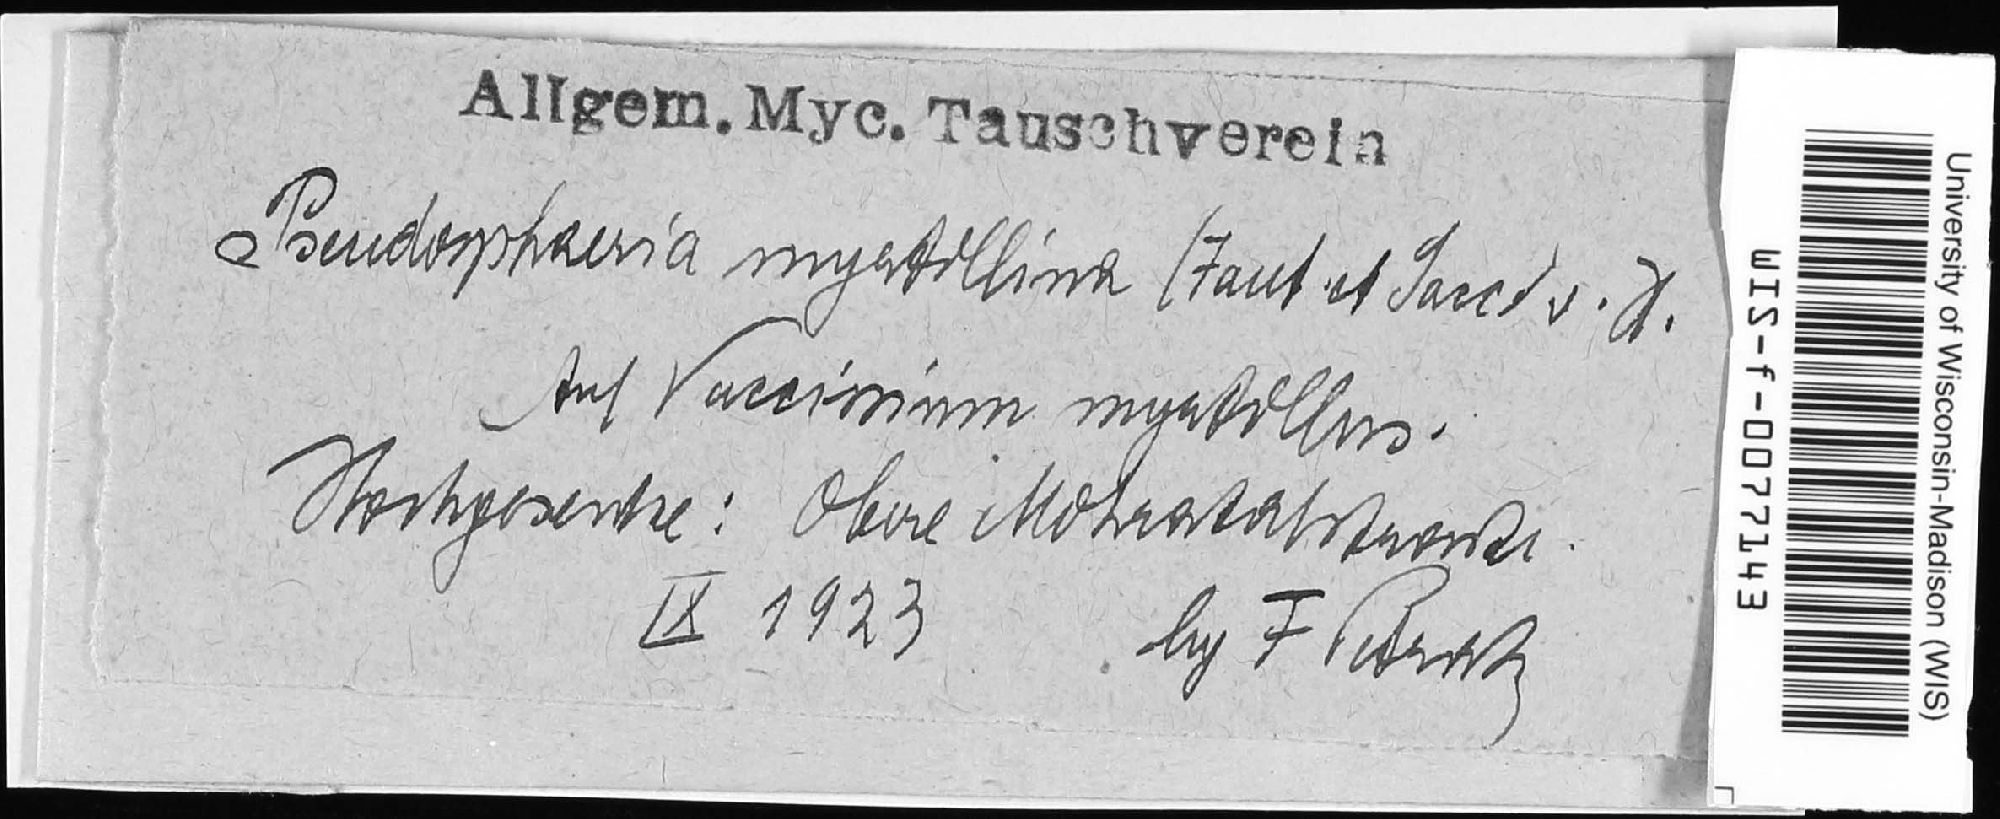 Allgem. Myc. Tauschverein
Pseudosphaeria myrtillina (Faut et Sacc) v. H.
Auf Vaccinium myrtillus.
Hochgesenke: Obere Mohratalstrecke.
IX 1923 leg F Petrak
University of Wisconsin-Madison (WIS)
WIS-f-0077143